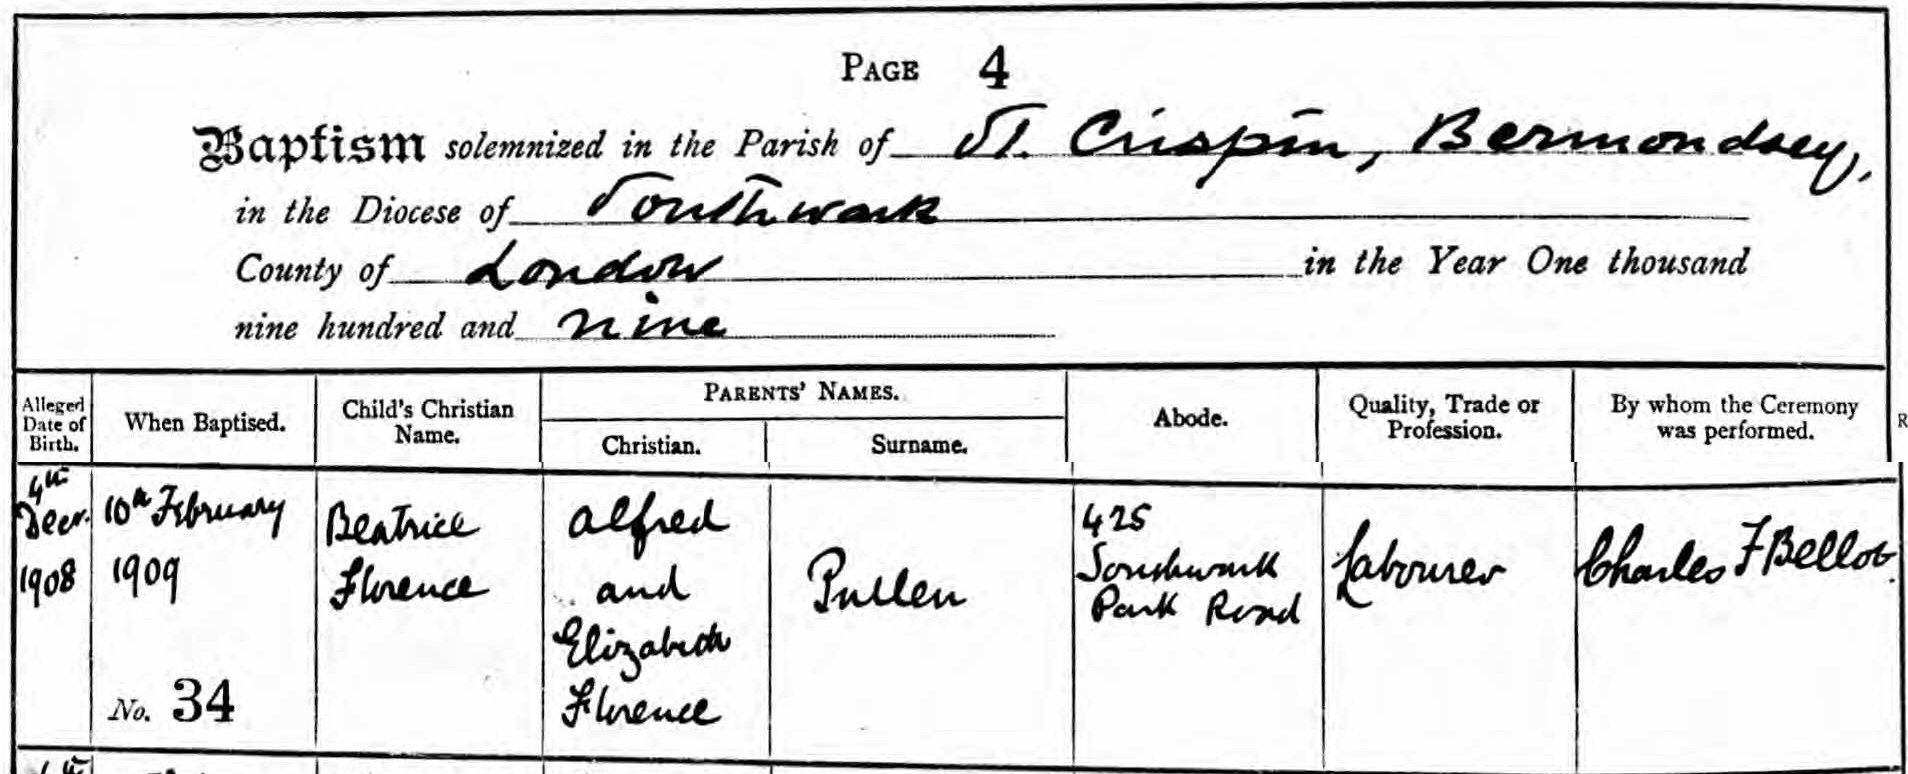 PAGE 4
Baptism solemnized in the Parish of St. Crispin, Bermondsey,
in the Diocese of Southwark
County of London in the Year One thousand
nine hundred and nine
Alleged Date of Birth.
When Baptised.
Child's Christian Name.
PARENTS' NAMES.
Christian.
Surname.
Abode.
Quality, Trade or Profession.
By whom the Ceremony was performed.
R
4th
Decr.
1908
10th February
1909
No. 34
Beatrice
Florence
Alfred
and
Elizabeth
Florence
Pullen
425
Southwark
Park Road
Labourer
Charles F Bellot